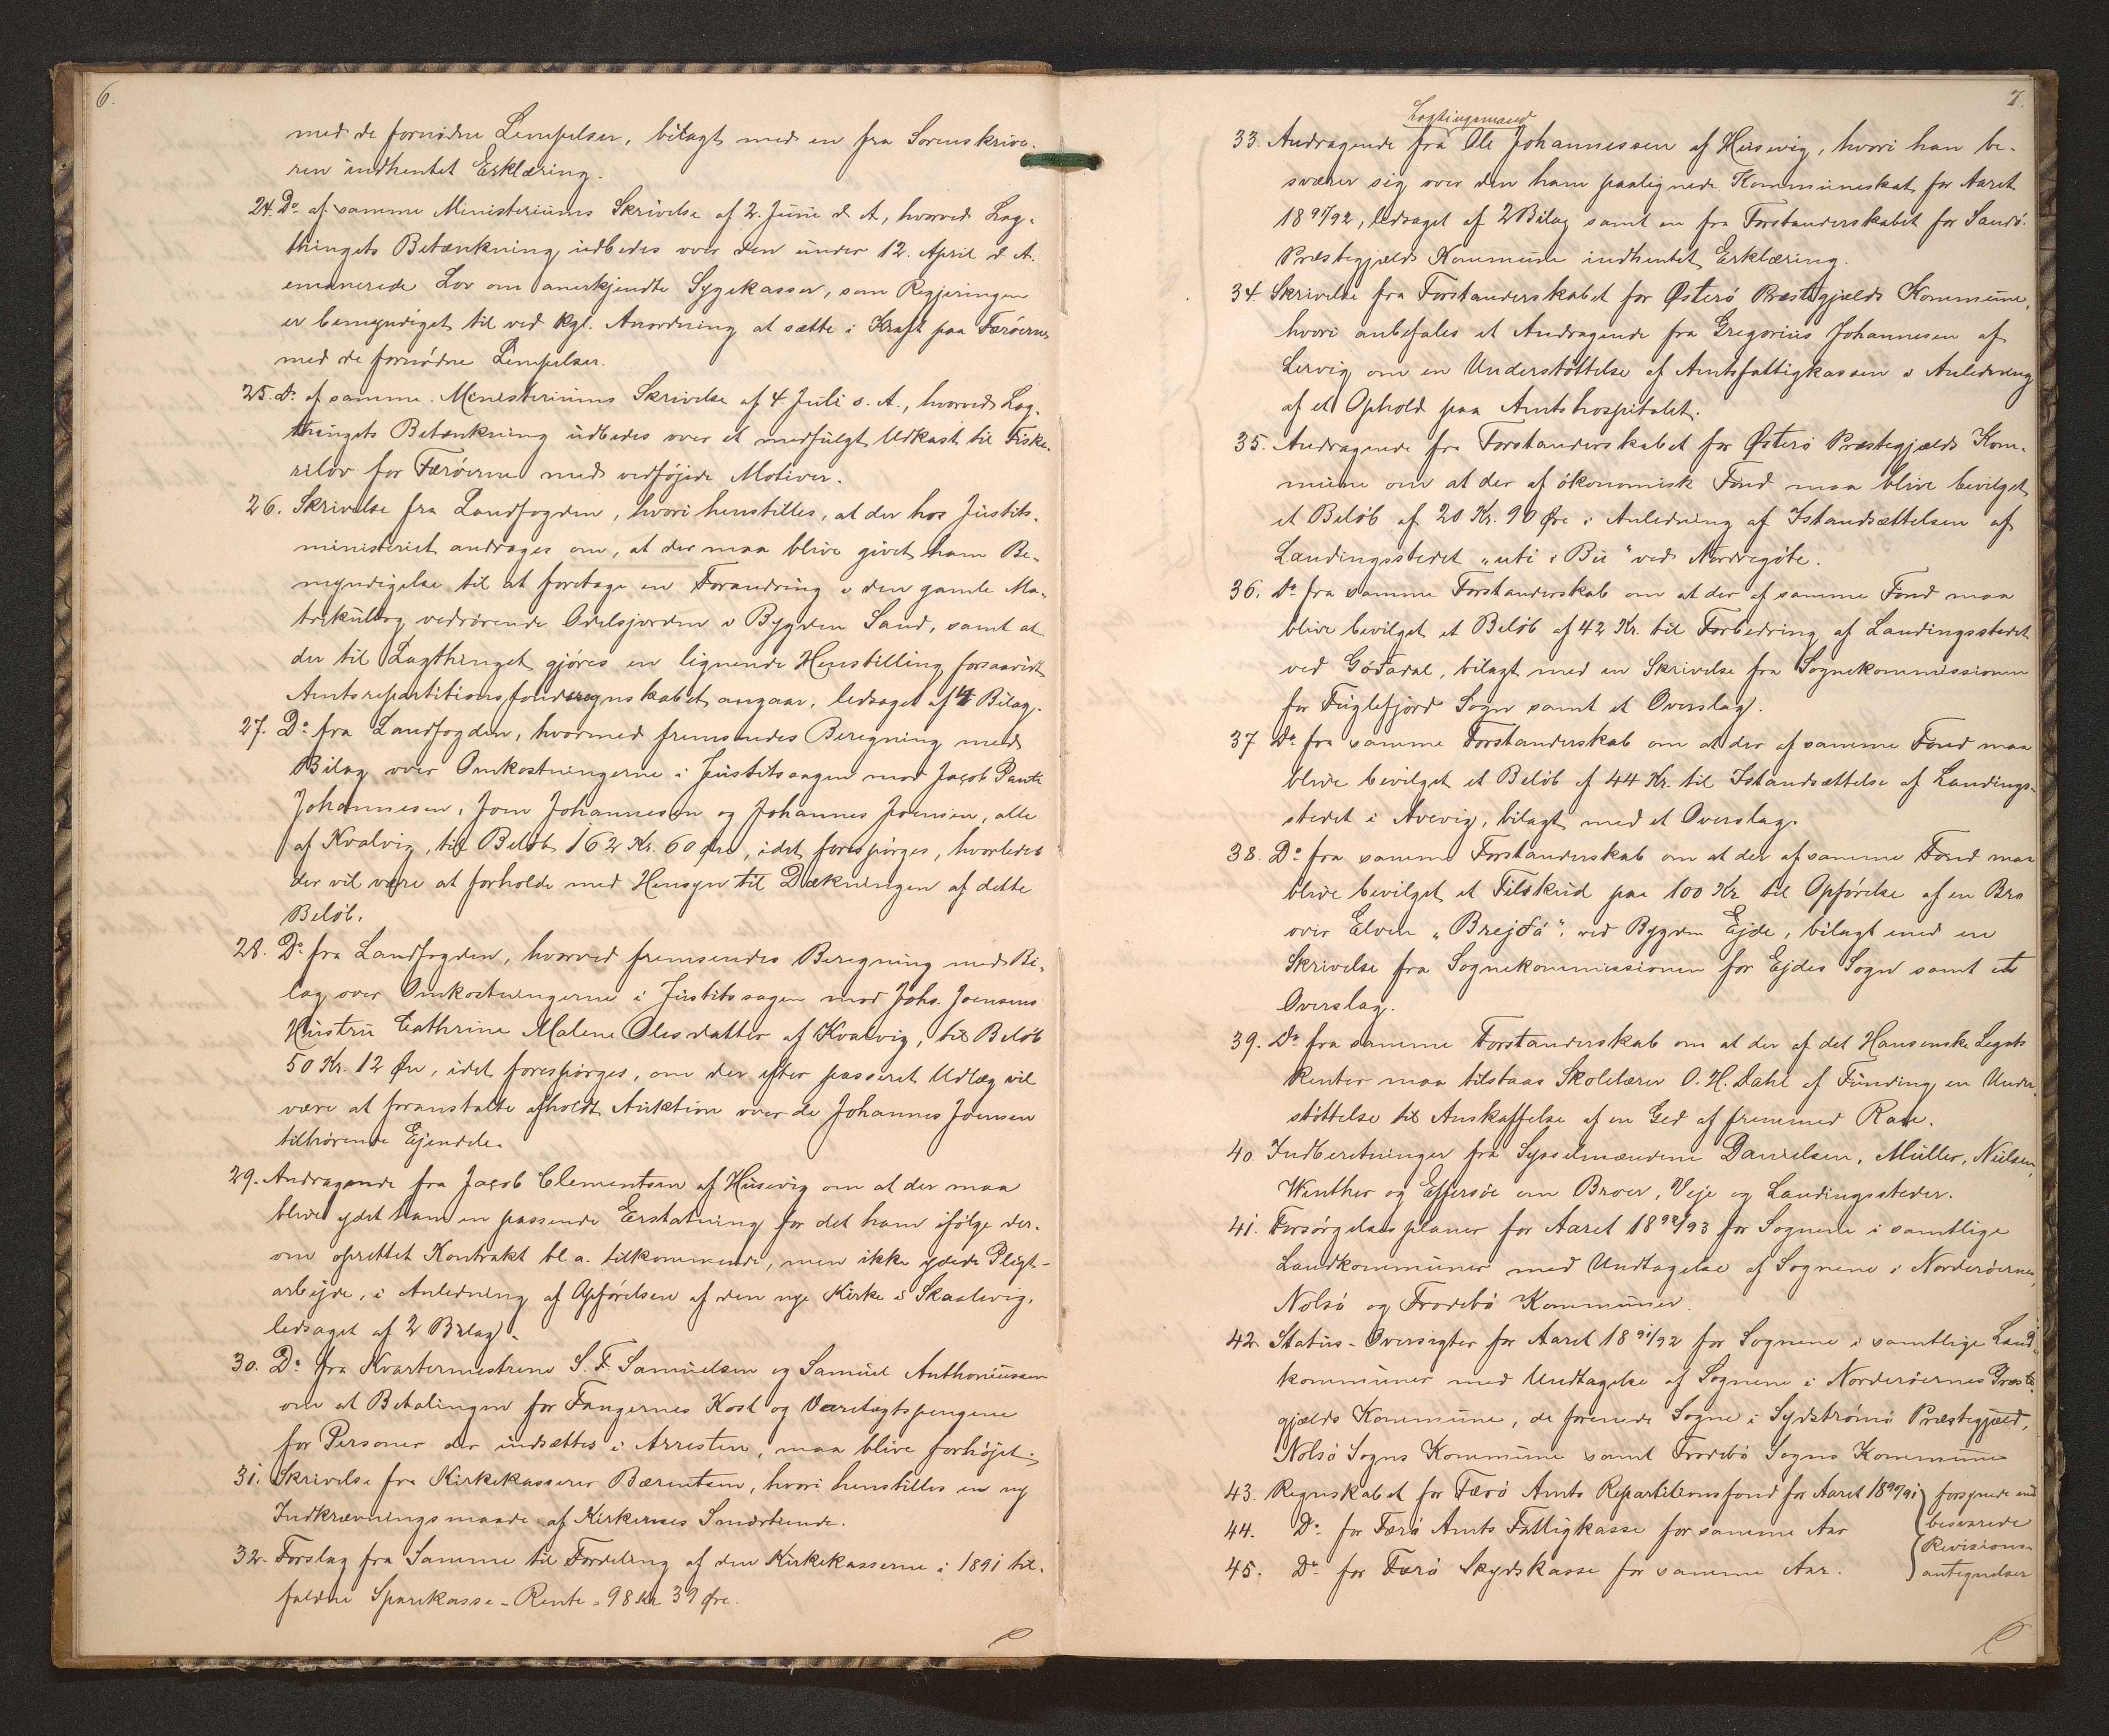 6.
med de fornødne Lempelser, bilagt med en fra Sorenskrive-
ren indhentet Erklæring.
24. Do af samme Ministeriums Skrivelse af 2. Juni d. A., hvorved Lag-
thingets Betænkning udbedes over den under 12. April d. A.
emanerede Lov om anerkjendte Sygekasser, som Regjeringen
er bemyndiget til ved kgl. Anordning at sætte i Kraft paa Færøerne
med de fornødne Lempelser.
25. Do af samme Ministeriums Skrivelse af 4. Juli d. A., hvorved Lag-
thingets Betænkning udbedes over et medfulgt Udkast til Fiske-
rilov for Færøerne med vedføjede Motiver.
26. Skrivelse fra Landfogden, hvori henstilles, at der hos Justits-
ministeriet andrages om, at der maa blive givet ham Be-
myndigelse til at foretage en Forandring i den gamle Ma-
trikulbog vedrørende Odelsjorden i Bygden Sand, samt at
der til Lagthinget gjøres en lignende Henstilling forsaavidt
Amtsrepartitionsfondsregnskabet angaar, ledsaget af 4 Bilag.
27. Do fra Landfogden, hvormed fremsendes Beregning med
Bilag over Omkostningerne i Justitssagen mod Jacob Pauli
Johannesen, Joen Johannesen og Johannes Joensen, alle
af Kvalvig, til Beløb 162 Kr. 60 Øre, idet forespørges, hvorledes
der vil være at forholde med Hensyn til Dækningen af dette
Beløb.
28. Do fra Landfogden, hvorved fremsendes Beregning med Bi-
lag over Omkostningerne i Justitssagen mod Johs. Joensens
Hustru Cathrine Malene Olesdatter af Kvalvig, til Beløb
50 Kr. 12 Øre, idet forespørges, om der efter passeret Udlæg vil
være at foranstalte afholdt Auktion over de Johannes Joensen
tilhørende Ejendele.
29. Andragende fra Jacob Clementsen af Husevig om at der maa
blive ydet ham en passende Erstatning for det ham ifølge der-
om oprettet Kontrakt bl. a. tilkommende, men ikke ydede Pligt-
arbejde, i Anledning af Opførelsen af den nye Kirke i Skaalevig,
ledsaget af 2 Bilag.
30. Do fra Kvartermestrene S. F. Samuelsen og Samuel Anthoniussen
om at Betalingen for Fangernes Kost og Varetægtspengene
for Personer der indsættes i Arresten, maa blive forhøjet.
31. Skrivelse fra Kirkekasserer Bærentsen, hvori henstilles en ny
Indkrævningsmaade af Kirkernes Smørtiende.
32. Forslag fra Samme til Fordeling af den Kirkekasserne i 1891 til-
faldne Sparekasse-Rente = 98 Kr 39 Øre.
7.
Lagtingsmand
33. Andragende fra Ole Johannessen af Husevig, hvori han be-
sværer sig over den ham paalignede Kommuneskat for Aaret
1891/92, ledsaget af 2 Bilag samt en fra Forstanderskabet for Sandø
Præstegjælds Kommune indhentet Erklæring.
34. Skrivelse fra Forstanderskabet for Østerø Præstegjælds Kommune,
hvori anbefales et Andragende fra Gregorius Johannesen af
Lervig om en Understøttelse af Amtsfattigkassen i Anledning
af et Ophold paa Amtshospitalet.
35. Andragende fra Forstanderskabet for Østerø Præstegjælds Kom-
mune om at der af økonomisk Fond maa blive bevilget
et Beløb af 20 Kr. 90 Øre i Anledning af Istandsættelsen af
Landingsstedet „uti i Bu" ved Nordregøte.
36. Do fra samme Forstanderskab om at der af samme Fond maa
blive bevilget et Beløb af 42 Kr. til Forbedring af Landingsstedet
ved Gøtadal, bilagt med en Skrivelse fra Sognekommissionen
for Fuglefjord Sogn samt et Overslag.
37. Do fra samme Forstanderskab om at der af samme Fond maa
blive bevilget et Beløb af 44 Kr. til Istandsættelse af Landings-
stedet i Avevig, bilagt med et Overslag.
38. Do fra samme Forstanderskab om at der af samme Fond maa
blive bevilget et Tilskud paa 100 Kr til Opførelse af en Bro
over Elven „Brejðá", ved Bygden Ejde, bilagt med en
Skrivelse fra Sognekommissionen for Ejdes Sogn samt et
Overslag.
39. Do fra samme Forstanderskab om at der af det Hansenske Legats
Renter maa tilstaas Skolelærer O. H. Dahl af Funding en Under-
støttelse til Anskaffelse af en Ged af fremmed Race.
40. Indberetninger fra Sysselmændene Danielsen, Müller, Nielsen,
Winther og Effersøe om Broer, Veje og Landingssteder.
41. Forsørgelsesplaner for Aaret 1892/93 for Sognene i samtlige
Landkommuner med Undtagelse af Sognene i Norderøernes,
Nolsø og Frodebø Kommuner.
42. Status-Oversigter for Aaret 1891/92 for Sognene i samtlige Land-
kommuner med Undtagelse af Sognene i Norderøernes Præste-
gjælds Kommune, de forenede Sogne i Sydstrømø Præstegjæld,
Nolsø Sogns Kommune samt Frodebø Sogns Kommune
43. Regnskabet for Færø Amts Repartitionsfond for Aaret 1890/91 forsynede med
44. Do for Færø Amts Fattigkasse for samme Aar besvarede
Revisions-
45. Do for Færø Skydskasse for samme Aar. antegnelser